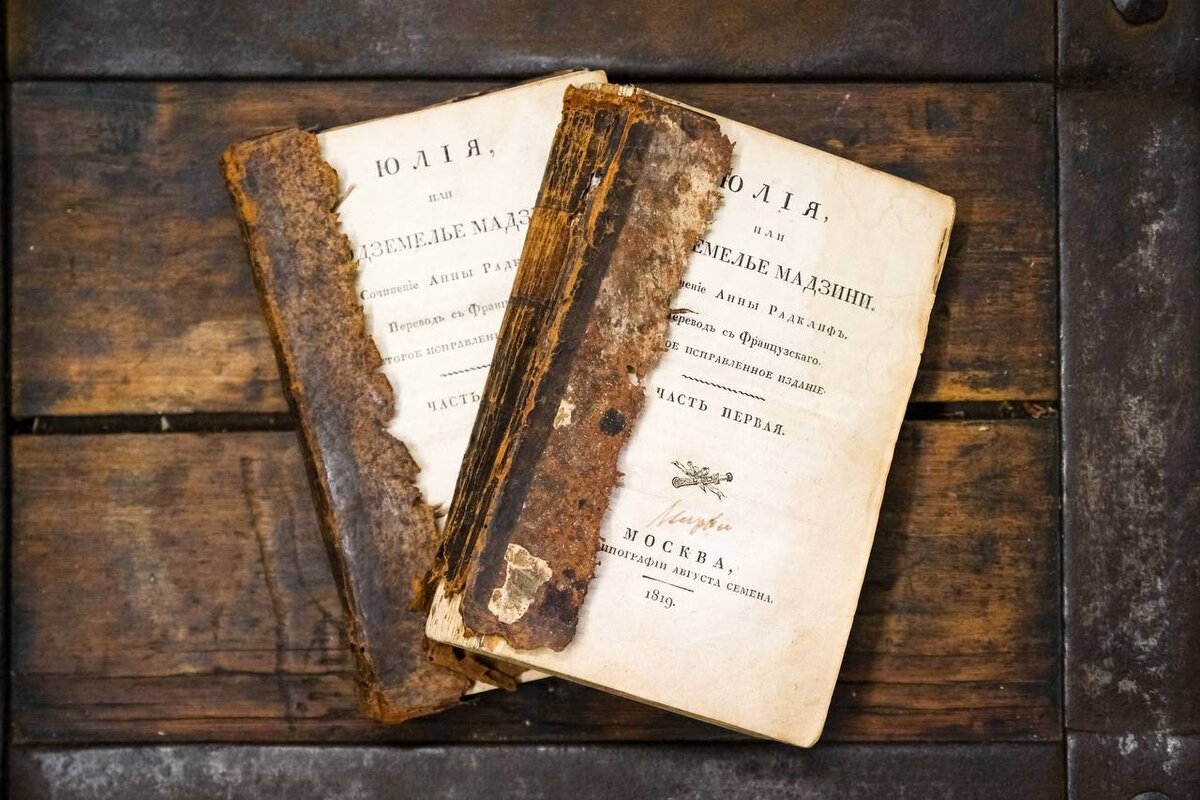 ЮЛІЯ,
ИЛИ
ДЗЕМЕЛЬЕ МАДЗ
Сочиненіе Анны Радк
Переводъ съ Фран
ТОРОЕ ИСПРАВЛЕН
ЧАСТЬ
ЮЛІЯ,
ИЛИ
ЕМЕЛЬЕ МАДЗИНИ.
неніе Анны Радклифъ.
Переводъ съ Французскаго.
ОЕ ИСПРАВЛЕННОЕ ИЗДАНІЕ.
ЧАСТЬ ПЕРВАЯ.
МОСКВА,
ТИПОГРАФІИ АВГУСТА СЕМЕНА.
1819.